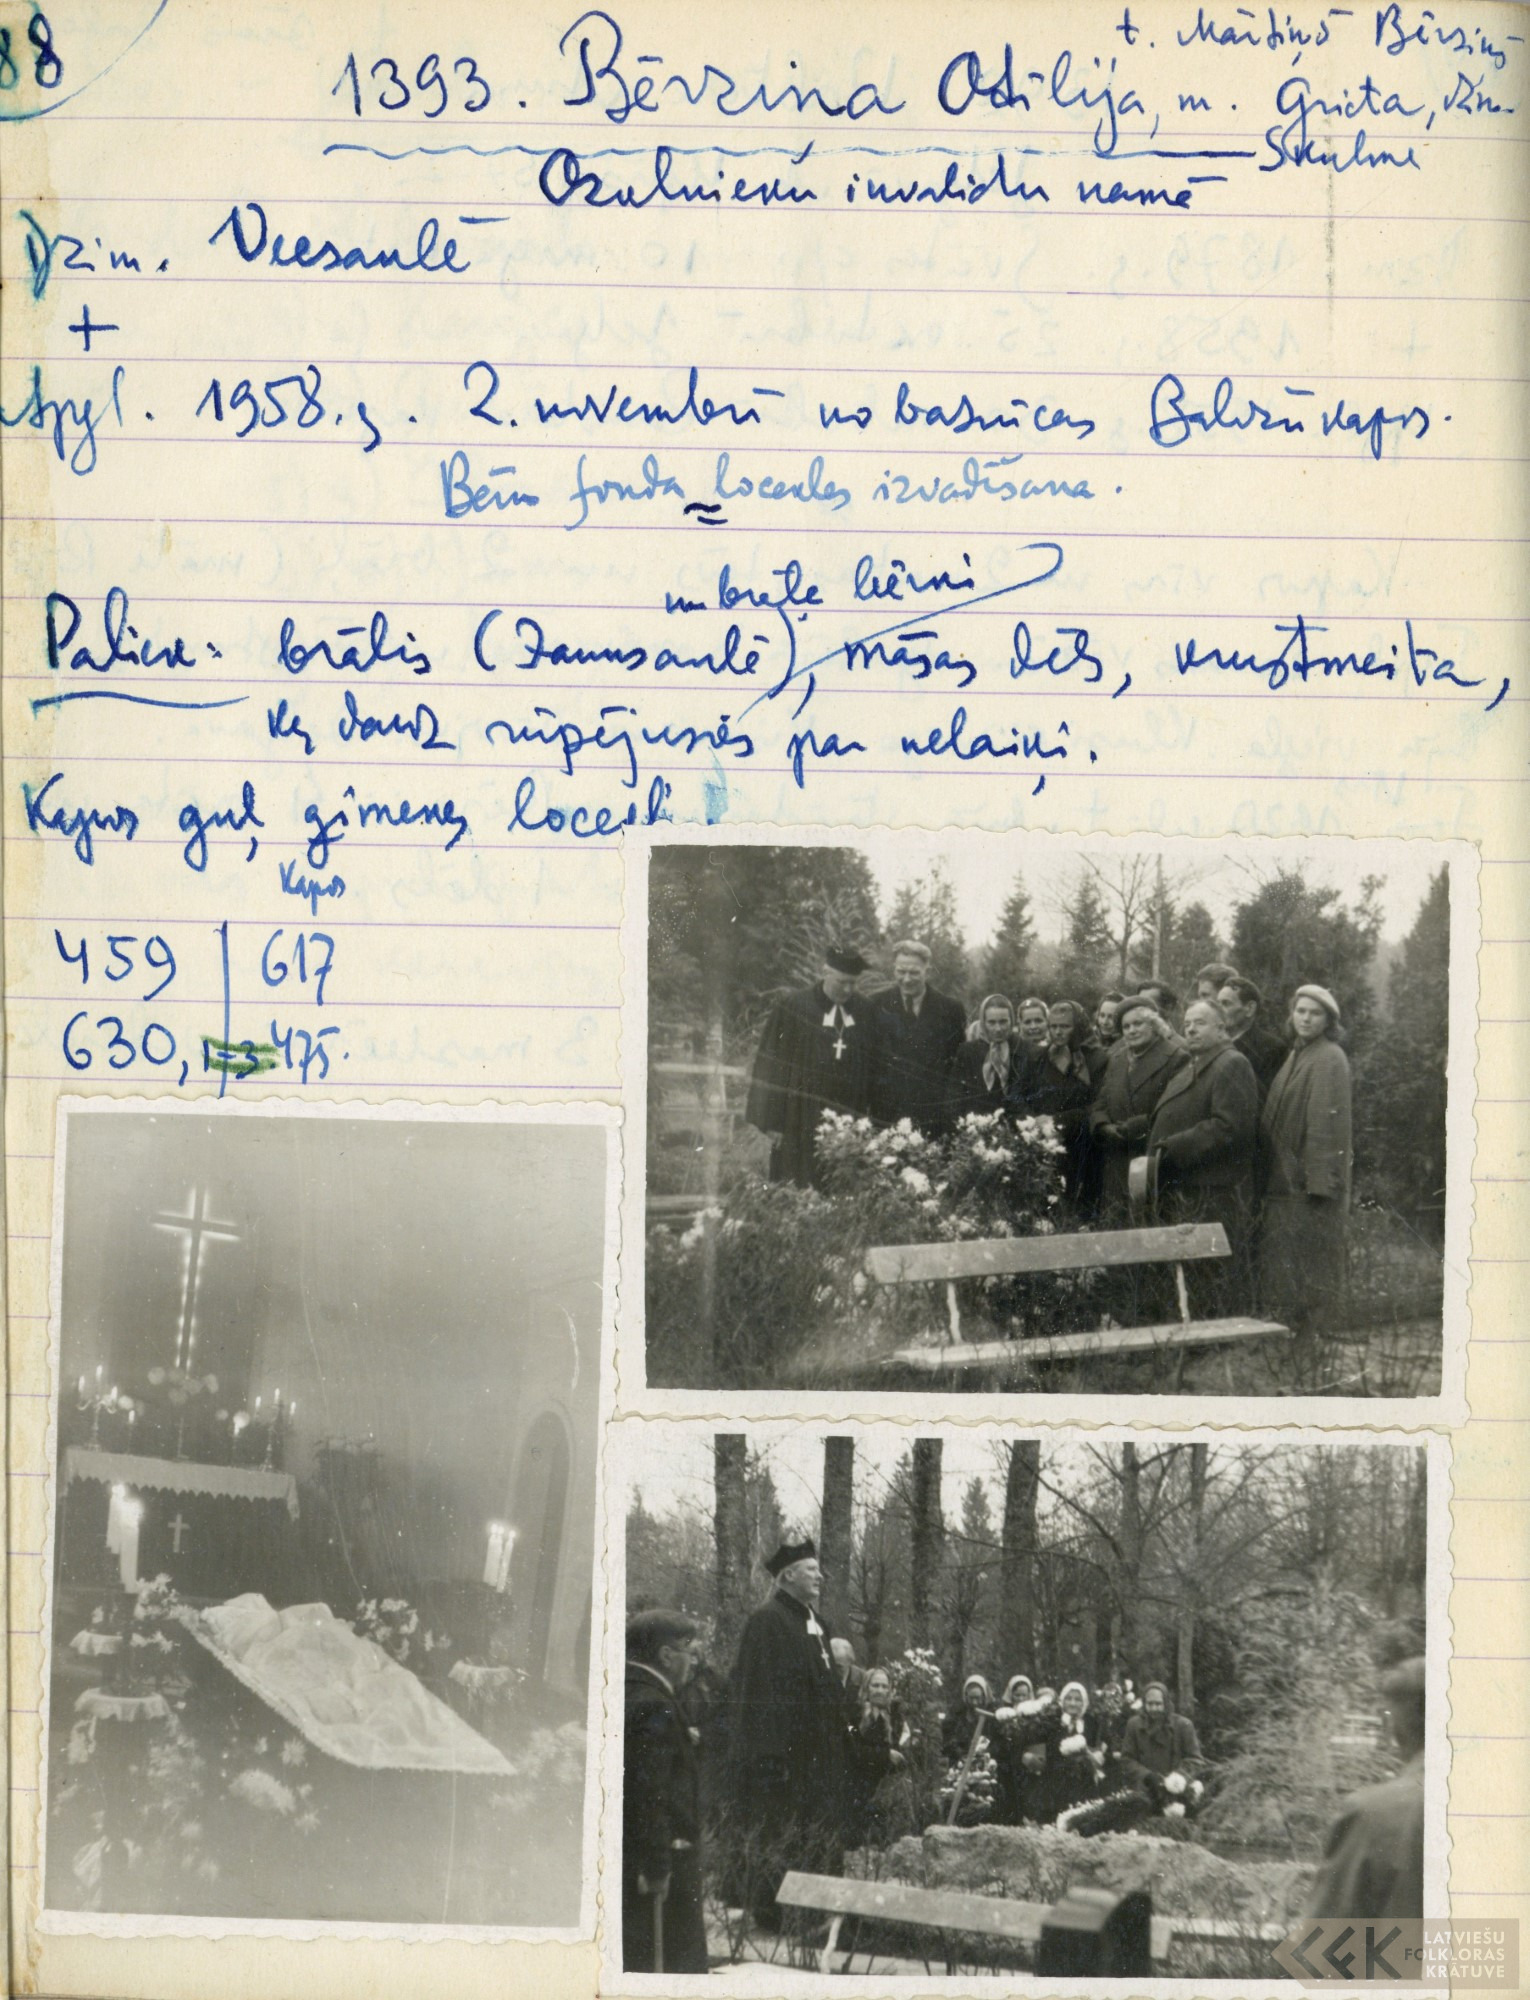 88
t. Mārtiņš Bērziņš
1393. Bērziņa Otīlija, m. Grieta, dzim.
Skulme
Ozolnieku invalidu namā
Dzim. Vecsaulē
+
Apgl. 1958. g. 2. novembrī no baznīcas Baldzū kapos.
Bēru fonda locekles izvadīšana.
un brāļa bērni
Paliek: brālis (Jaunsaulē), māsas dēls, krustmeita,
kas daudz rūpējusies par nelaiķi.
Kapos guļ ģimenes locekļi.
Kapos
459 | 617
630, 1-3. 475.
LATVIEŠU
FOLKLORAS
KRĀTUVE